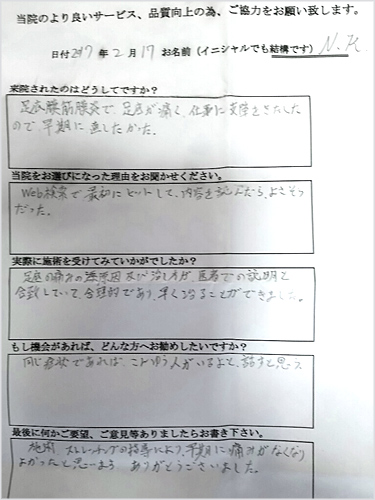 当院のより良いサービス、品質向上の為、ご協力をお願い致します。
日付 2017 年 2 月 17 お名前(イニシャルでも結構です) N.K
来院されたのはどうしてですか?
足底腱筋膜炎で、足底が痛く、仕事に支障をきたした
ので、早期に直したかった。
当院をお選びになった理由をお聞かせください。
Web検索で最初にヒットして、内容を読んだら、よさそう
だった。
実際に施術を受けてみていかがでしたか?
足底の痛みの原因及び治し方が、医者での説明と
合致していて、合理的であり、早く治ることができました。
もし機会があれば、どんな方へお勧めしたいですか?
同じ症状であれば、こうゆう人がいるよと、話すと思う。
最後に何かご要望、ご意見等ありましたらお書き下さい。
施術、ストレッチングの指導により、早期に痛みがなくなり
よかったと思います ありがとうございました。